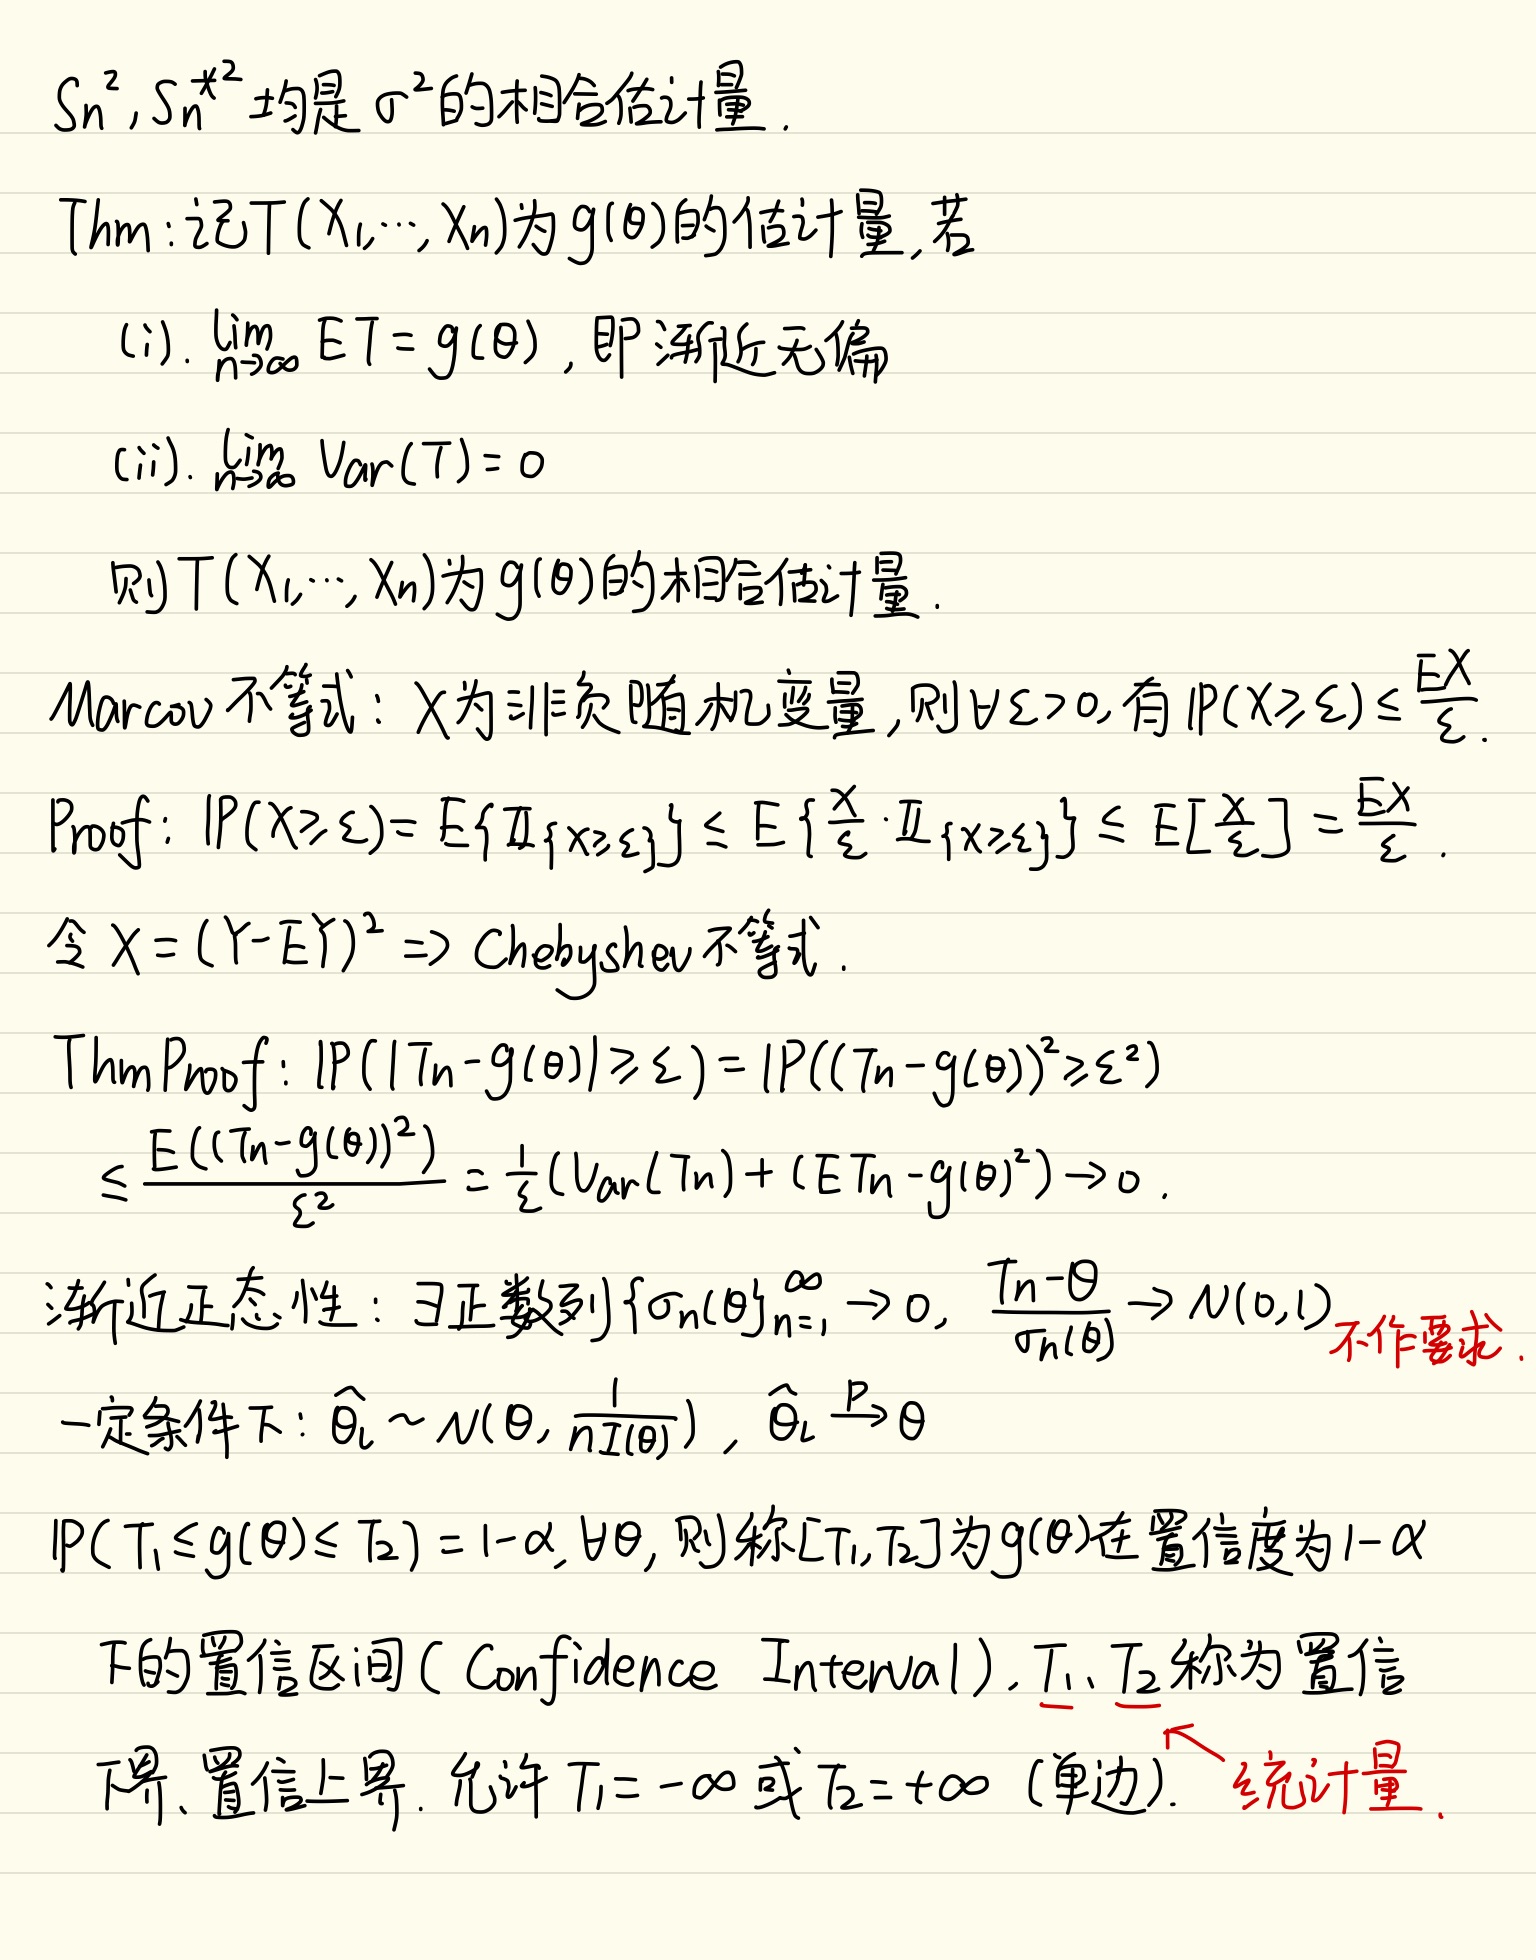 Sn², Sn*² 均是 σ² 的相合估计量.
Thm: 记 T(X₁,…, Xn) 为 g(θ) 的估计量, 若
(i). lim n→∞ ET = g(θ), 即渐近无偏
(ii). lim n→∞ Var(T) = 0
则 T(X₁,…, Xn) 为 g(θ) 的相合估计量.
Marcov 不等式: X 为非负随机变量, 则 ∀ε>0, 有 ℙ(X≥ε) ≤ EX/ε.
Proof: ℙ(X≥ε) = E{𝕀{X≥ε}} ≤ E{X/ε · 𝕀{X≥ε}} ≤ E[X/ε] = EX/ε.
令 X = (Y-EY)² => Chebyshev 不等式.
Thm Proof: ℙ(|Tn-g(θ)| ≥ ε) = ℙ((Tn-g(θ))² ≥ ε²)
≤ E((Tn-g(θ))²)/ε² = 1/ε (Var(Tn) + (ETn-g(θ)²) → 0.
渐近正态性: ∃正数列{σn(θ}n=1^∞ → 0, (Tn-θ)/σn(θ) → N(0,1) 不作要求.
一定条件下: θ̂L ~ N(θ, 1/(nI(θ))), θ̂L →ᴾ θ
ℙ(T₁ ≤ g(θ) ≤ T₂) = 1-α, ∀θ, 则称[T₁,T₂]为g(θ)在置信度为1-α
下的置信区间(Confidence Interval), T₁、T₂ 称为置信
下界、置信上界. 允许 T₁ = -∞ 或 T₂ = +∞ (单边). 统计量.